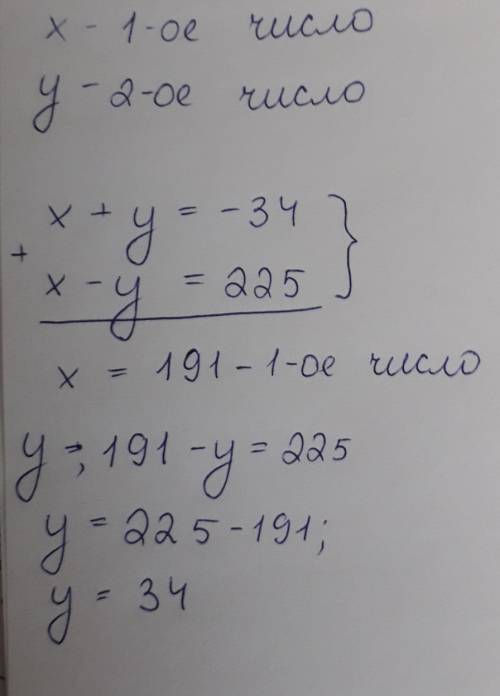 x - 1-ое число
y - 2-ое число
x + y = -34 }
+
x - y = 225
x = 191 - 1-ое число
y =, 191 - y = 225
y = 225 - 191;
y = 34